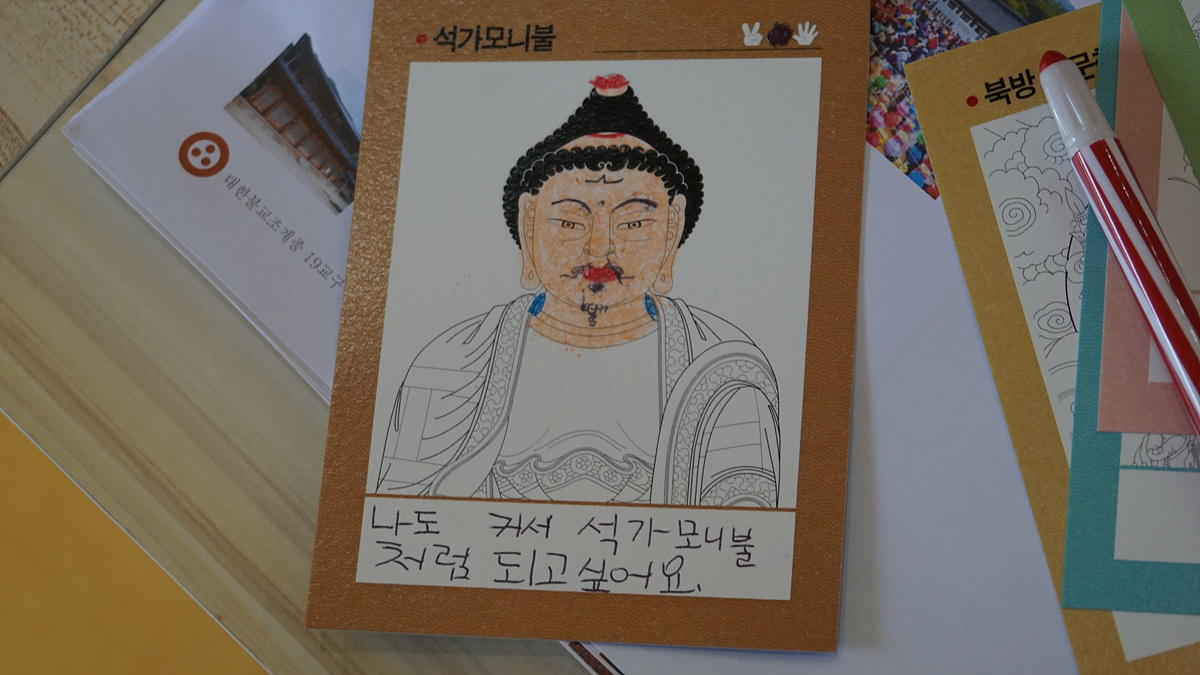 석가모니불
대한불교조계종 19교구
북방
나도 커서 석가모니불
처럼 되고싶어요.